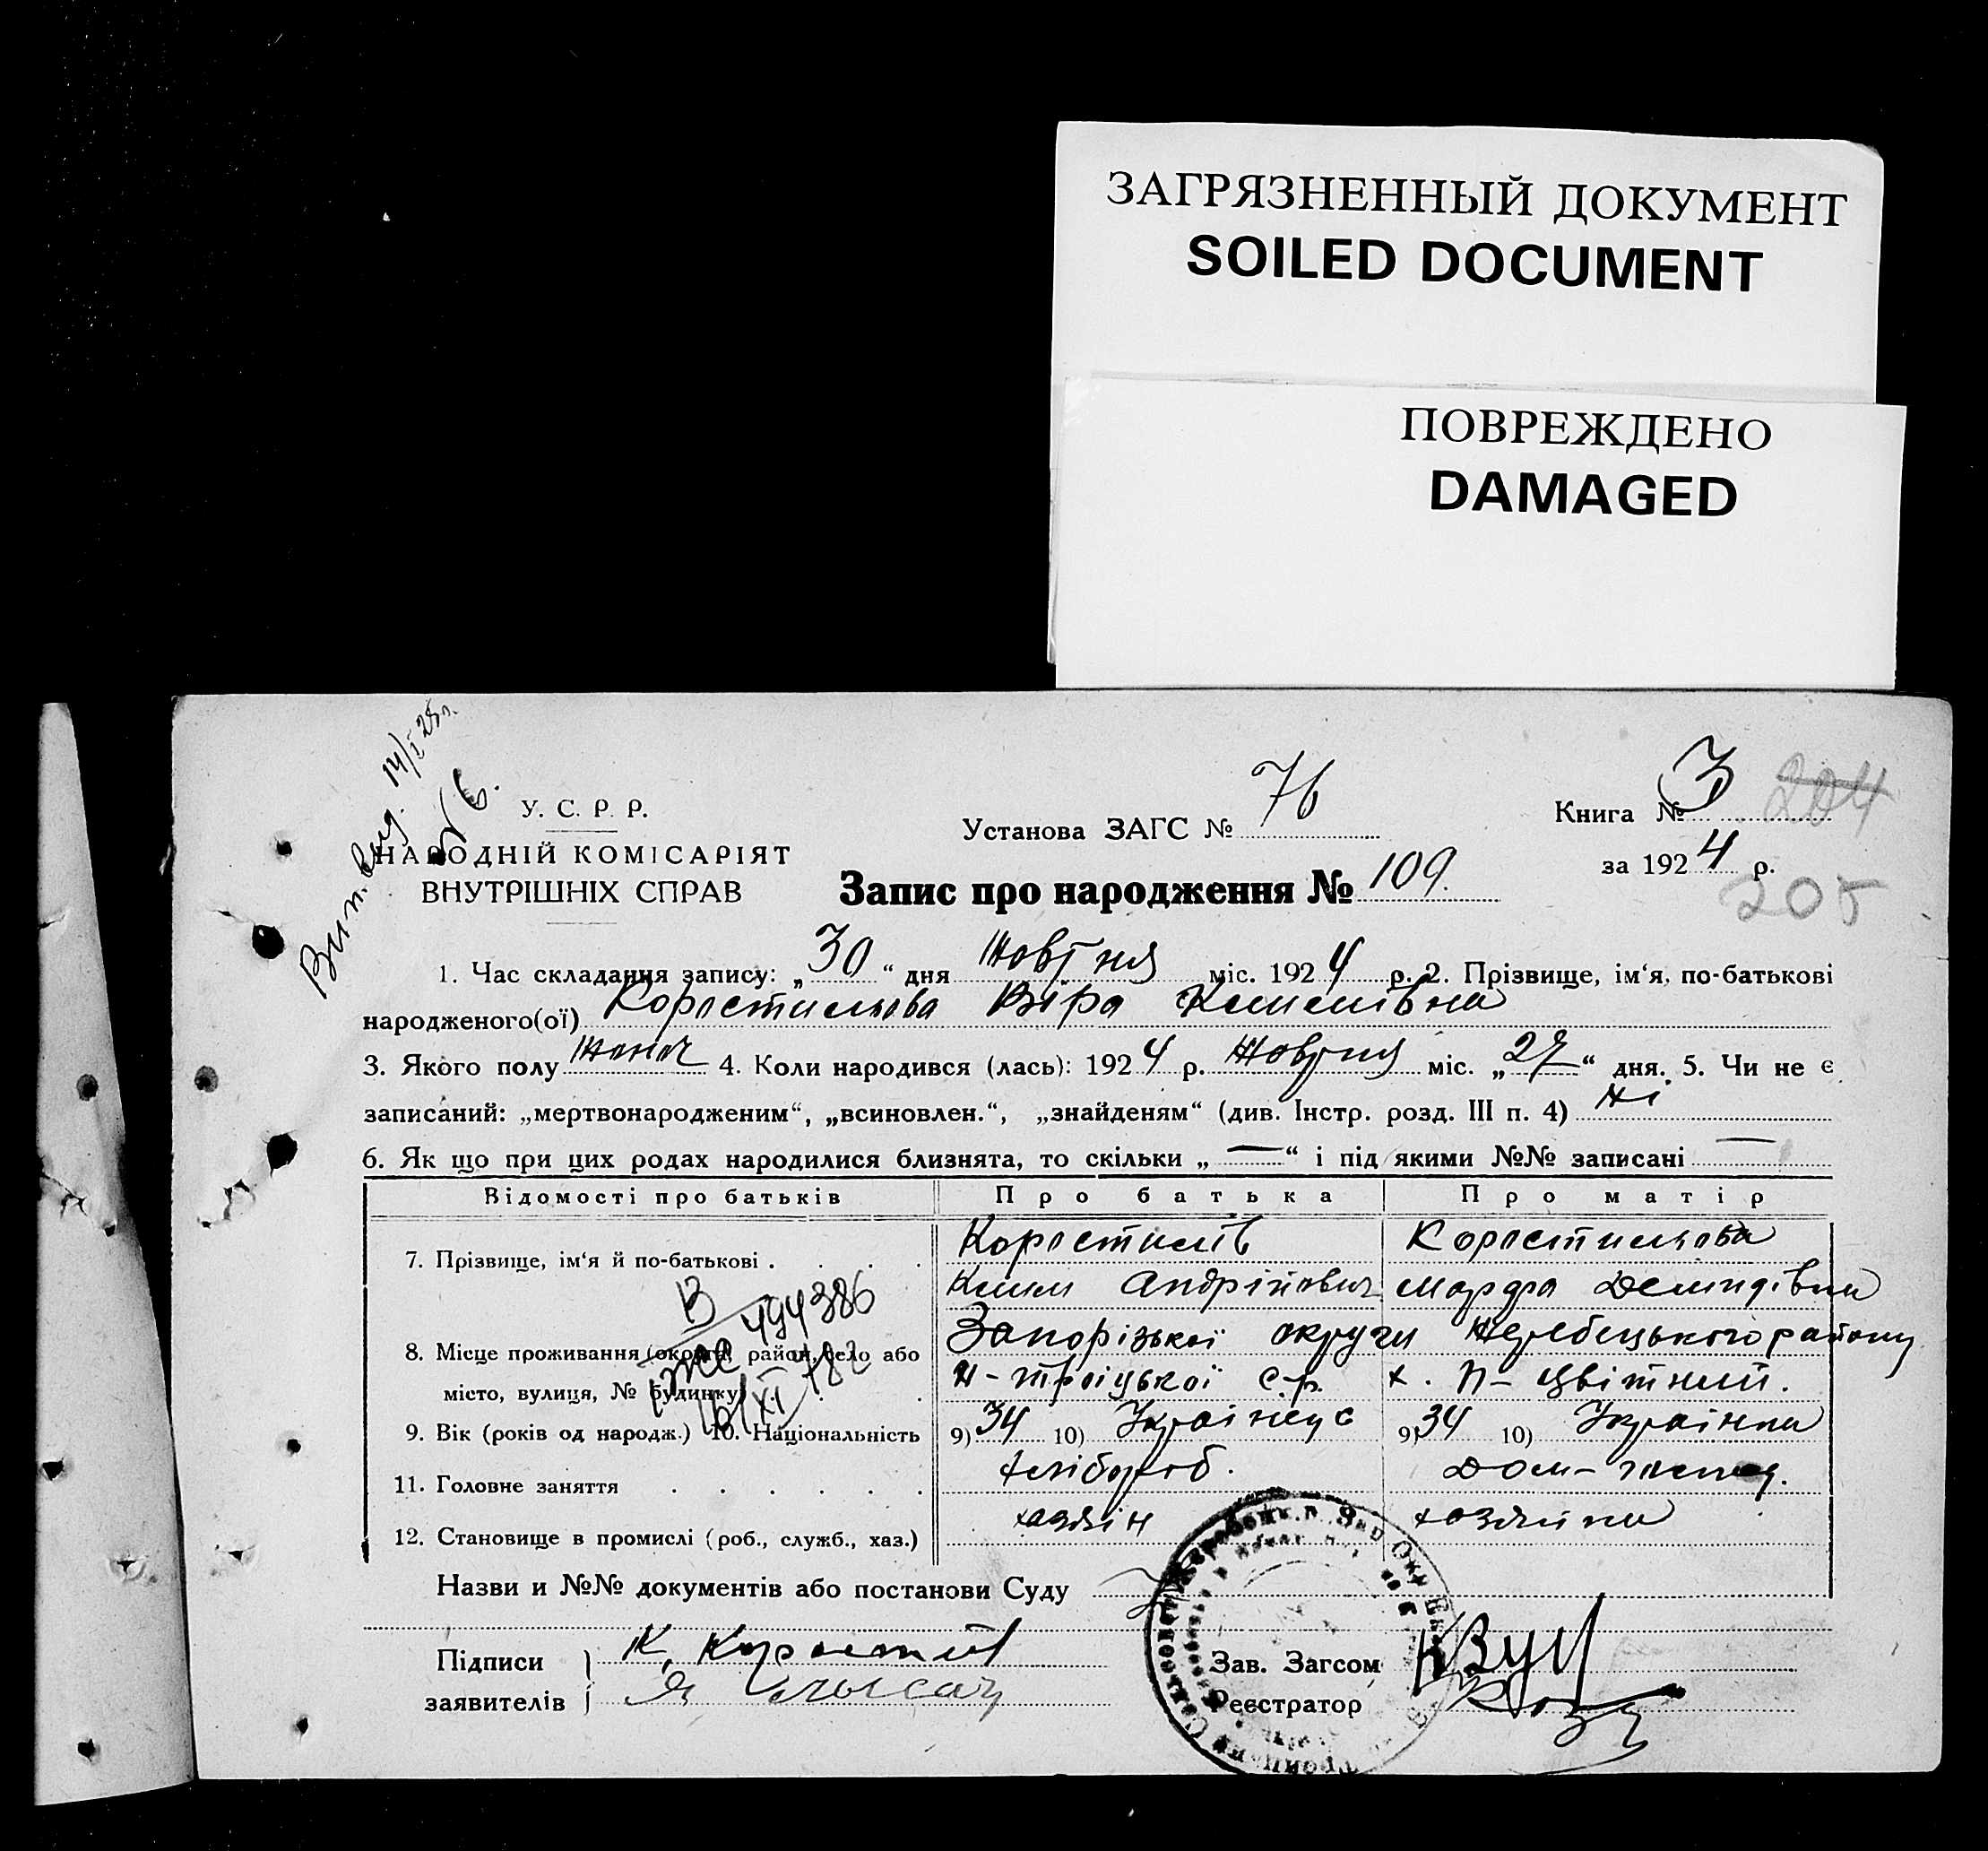 ЗАГРЯЗНЕННЫЙ ДОКУМЕНТ
SOILED DOCUMENT
ПОВРЕЖДЕНО
DAMAGED
Вип. вид. 14/I 25р.
№ 6.
У. С. Р. Р.
НАРОДНІЙ КОМІСАРІЯТ
ВНУТРІШНІХ СПРАВ
Установа ЗАГС № 76
Книга № 3 204
за 1924 р.
205
Запис про народження № 109.
1. Час складання запису: „30“ дня Жовтня міс. 1924 р. 2. Прізвище, ім‘я, по-батькові
народженого(ої) Коростильова Віра Климівна
3. Якого полу Жоноч 4. Коли народився (лась): 1924 р. Жовтня міс. „27“ дня. 5. Чи не є
записаний: „мертвонародженим“, „всиновлен.“, „знайденям“ (див. Інстр. розд. III п. 4) Ні
6. Як що при цих родах народилися близнята, то скільки „—“ і під якими №№ записані —
Відомості про батьків Про батька Про матір
7. Прізвище, ім‘я й по-батькові . . . . Коростилів Коростильова
Клим Андрійович Марфа Демидівна
В 494386
8. Місце проживання (округа, район, село або Запорізької округи Жеребецького району
місто, вулиця, № будинку) . . Н-Троіцької с.р. х. П-Цвітний.
9. Вік (років од народж.) 10. Національність 9) 34 10) Українец 9) 34 10) Українка
11. Головне заняття . . . . . . Хлібороб. Дом-господ.
12. Становище в промислі (роб., служб., хаз.) хазяін хозяйка
Назви и №№ документів або постанови Суду
Підписи К. Коростилів
заявителів
Зав. Загсом
Реєстратор